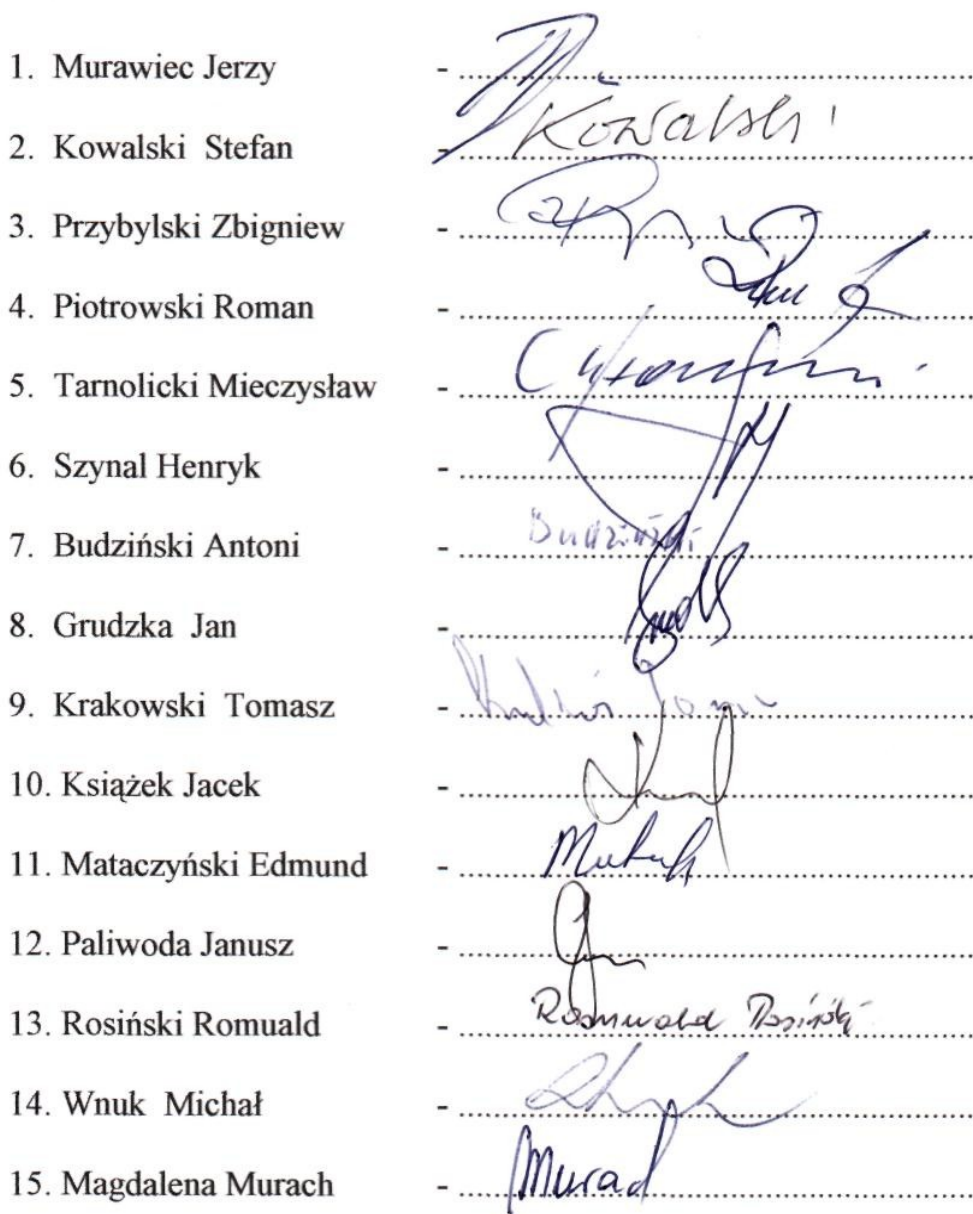 1. Murawiec Jerzy - 
2. Kowalski Stefan - Kowalski
3. Przybylski Zbigniew - 
4. Piotrowski Roman - 
5. Tarnolicki Mieczysław - 
6. Szynal Henryk - 
7. Budziński Antoni - Budziński
8. Grudzka Jan - 
9. Krakowski Tomasz - 
10. Książek Jacek - 
11. Mataczyński Edmund - 
12. Paliwoda Janusz - 
13. Rosiński Romuald - Romuald Rosiński
14. Wnuk Michał - 
15. Magdalena Murach -